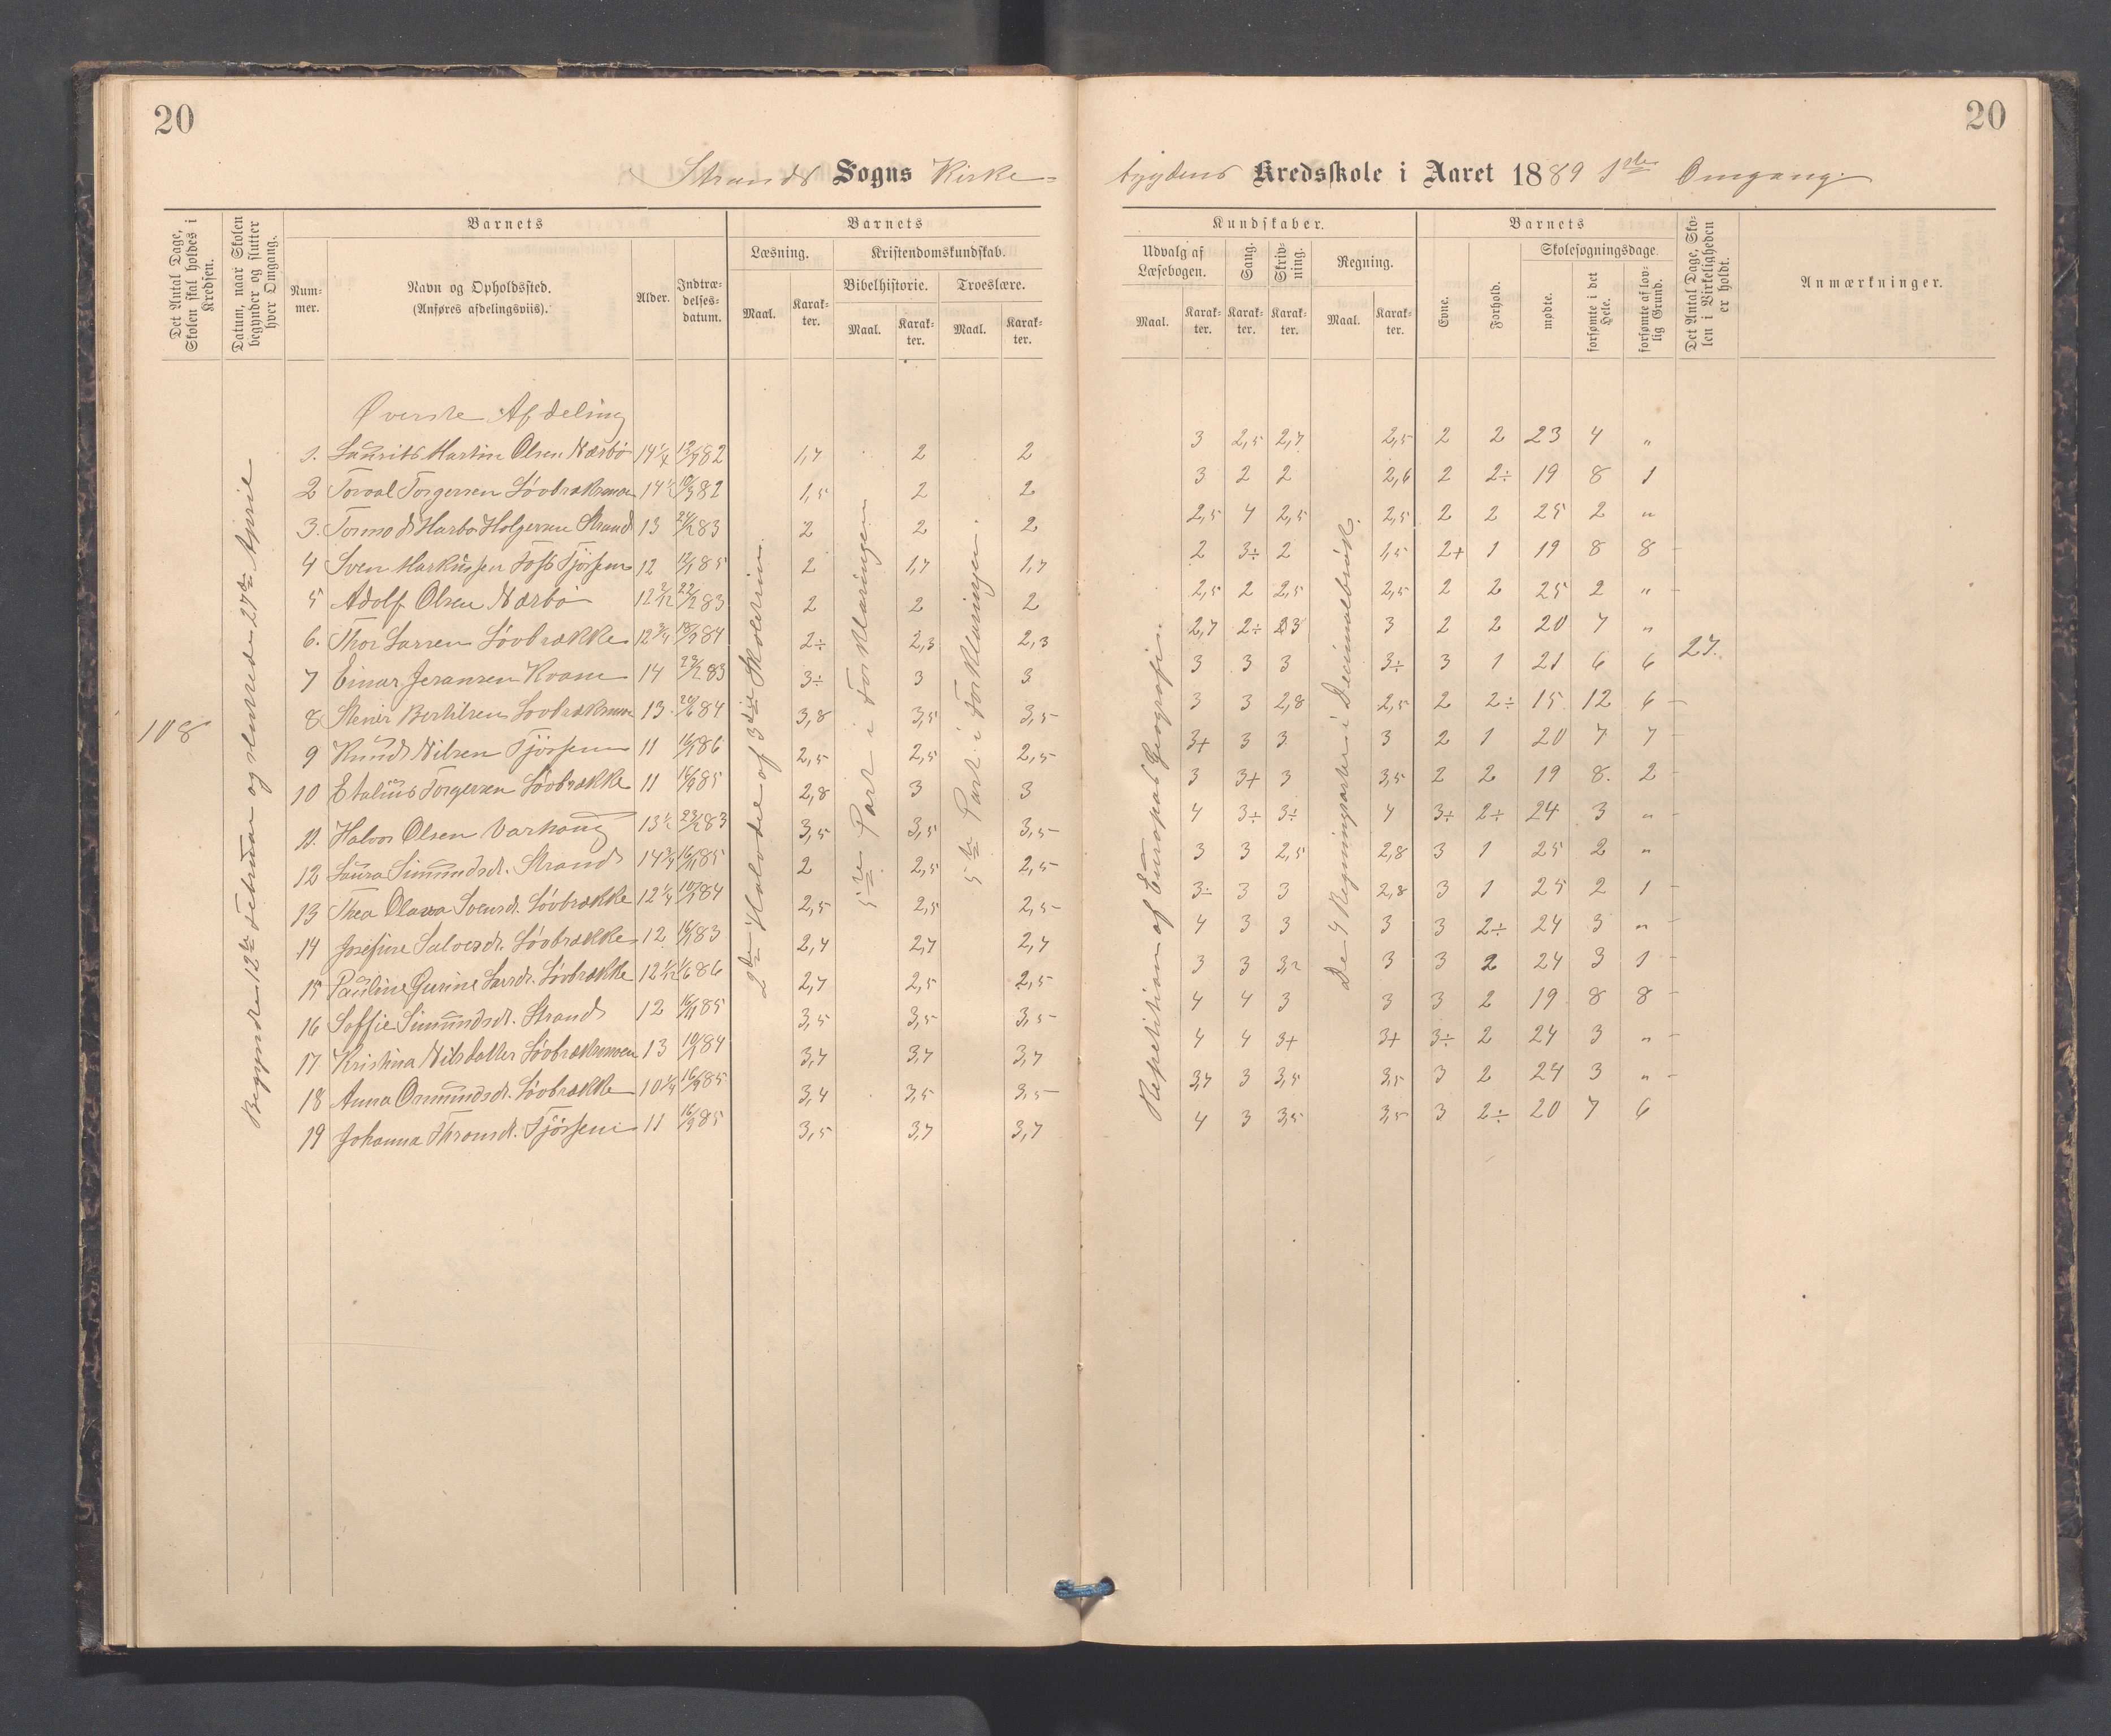 20
20
Strands Sogns Kirke=
bygdens Kredsskole i Aaret 1889 1ste Omgang.
Det Antal Dage, Skolen skal holdes i Kredsen.
Datum, naar Skolen begynder og slutter hver Omgang.
Barnets
Num-mer.
Navn og Opholdssted.
(Anføres afdelingsviis).
Alder.
Indtræ-delses-datum.
Barnets
Læsning.
Kristendomskundskab.
Bibelhistorie.
Troeslære.
Maal.
Karak-ter.
Maal.
Karak-ter.
Maal.
Karak-ter.
Kundskaber.
Udvalg af Læsebogen.
Sang.
Skriv-ning.
Regning.
Maal.
Karak-ter.
Karak-ter.
Karak-ter.
Maal.
Karak-ter.
Barnets
Evne.
Forhold.
Skolesøgningsdage.
mødte.
forsømte i det Hele.
forsømte af lov-lig Grund.
Det Antal Dage, Sko-len i Virkeligheden er holdt.
Anmærkninger.
108
Begyndte 12te Februar og sluttede 27de April
2den Halvdel af 3die Skoletrin.
5te Part i Forklaringen
5te Part i Forklaringen.
Repetition af Europas Geografi.
De 4 Regningsarter i Decimalbrøk.
27.
Øverste Afdeling
1. Laurits Martin Olsen Nærbø 14 1/4 82 1,7 2 2 3 2,5 2,7 2,5 2 2 23 4 "
2 Torval Torgersen Løvbrækmoen 82 1,5 2 2 3 2 2 2,6 2 2÷ 19 8 1
3. Tormod Harbo Holgersen Strand 13 83 2 2 2 2,5 4 2,5 2,5 2 2 25 2 "
4 Sven Markussen Tjøssem 12 85 2 1,7 1,7 2 3÷ 2 1,5 2+ 1 19 8 8
5 Adolf Olsen Nærbø 12 83 2 2 2 2,5 2 2,5 2,5 2 2 25 2 "
6. Thor Larsen Løvbrække 12 3/4 84 2÷ 2,3 2,3 2,7 2÷ 2,3 3 2 2 20 7 "
7 Einar Jeransen Kvam 14 83 3÷ 3 3 3 3 3 3÷ 3 1 21 6 6
8 Bertilsen Løvbrækmoen 13 84 3,8 3,5 3,5 3 3 2,8 2,5 2 2÷ 15 12 6
9 Knud Nilsen Tjøssem 11 86 2,5 2,5 2,5 3+ 3 3 3 2 1 20 7 7
10 Torgersen Løvbrække 11 85 2,8 3 3 3 3+ 3 3,5 2 2 19 8. 2
11. Halvor Olsen Varhaug 13 1/2 83 3,5 3,5 3,5 4 3÷ 3÷ 4 3÷ 2÷ 24 3 "
12 Laura Simundsdt. Strand 14 3/4 85 2 2,5 2,5 3 3 2,5 2,8 3 1 25 2 "
13 Thea Olava Svensdt. Løvbrække 12 1/4 84 2,5 2,5 2,5 3÷ 3 3 2,8 3 1 25 2 1
14 Josefine Salvesdt. Løvbrække 12 83 2,7 2,7 2,7 4 3 3 3 3 2÷ 24 3 "
15 Pauline Gurine Larsdt. Løvbrække 12 1/12 86 2,7 2,5 2,5 3 3 3,2 3 3 2 24 3 1
16 Soffie Simundsdt. Strand 12 85 3,5 3,5 3,5 4 4 3 3 3 2 19 8 8
17 Kristina Nilsdatter Løvbrækmoen 13 84 3,7 3,7 3,7 4 4 3+ 3+ 3÷ 2 24 3 "
18 Anna Osmundsdt. Løvbrække 10 1/4 85 3,4 3,5 3,5 3,7 3 3,5 3,5 3 2 24 3 "
19 Johanna Thronsdt. Tjøssem 11 85 3,5 3,7 3,7 4 3 3,5 3,5 3 2÷ 20 7 6